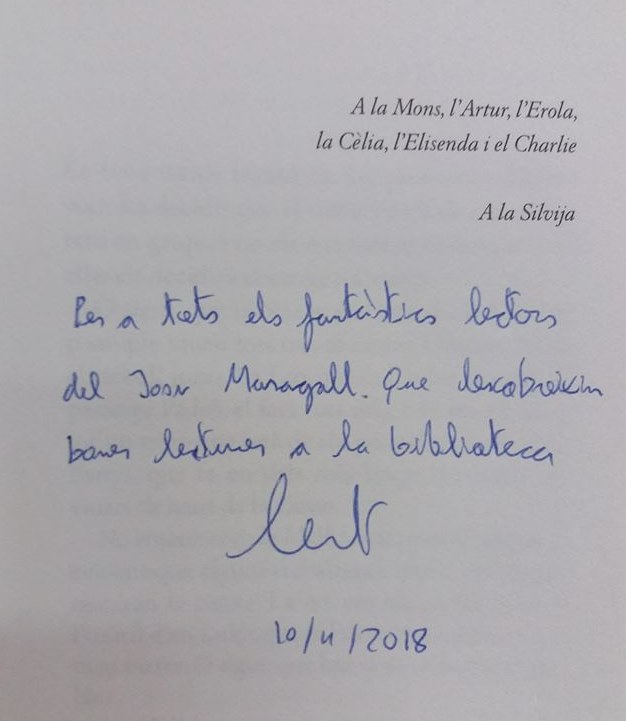 A la Mons, l'Artur, l'Erola,
la Cèlia, l'Elisenda i el Charlie
A la Silvija
Per a tots els fantàstics lectors
del Joan Maragall. Que descobreixin
bones lectures a la biblioteca
10/11/2018